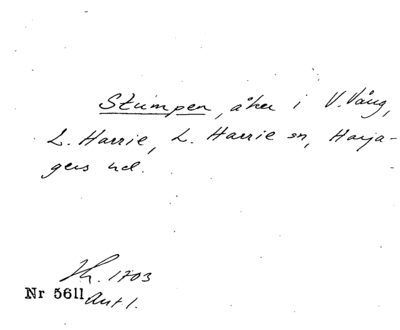 Stumpen, åker i V. Vång,
L. Harrie, L. Harrie sn, Harja-
gers hd.
1703
Nr 5611 Ant 1.